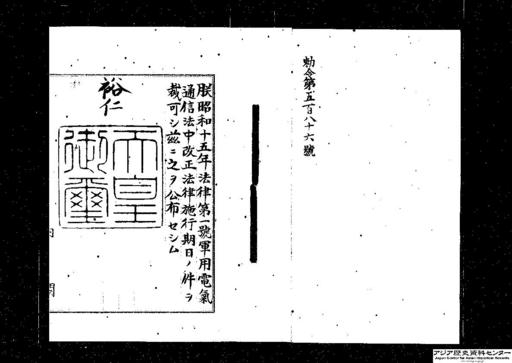 勅令第五百八十六號
朕昭和十五年法律第一號軍用電氣
通信法中改正法律施行期日ノ件ヲ
裁可シ茲ニ之ヲ公布セシム
裕仁
天皇
御璽
内閣
アジア歴史資料センター
Japan Center for Asian Historical Records